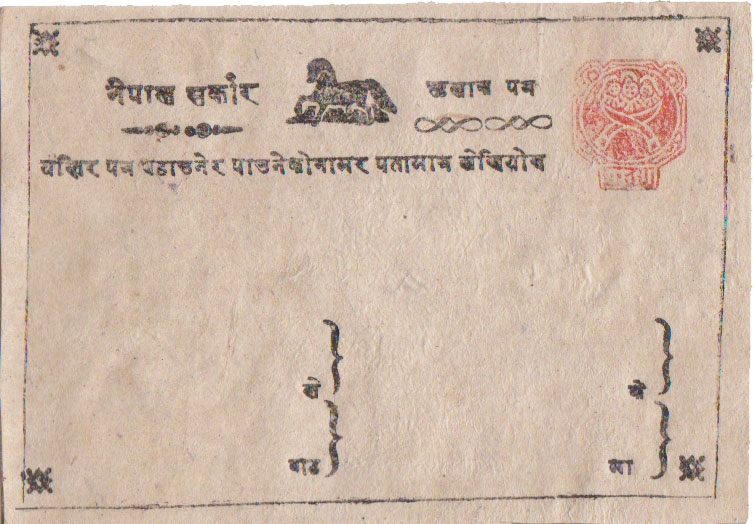 नेपाल सर्कार
पत्र
पत्र पठाउनेर पाउनेकोनामर पतामात्र लेखियोस
ले
बाट मा